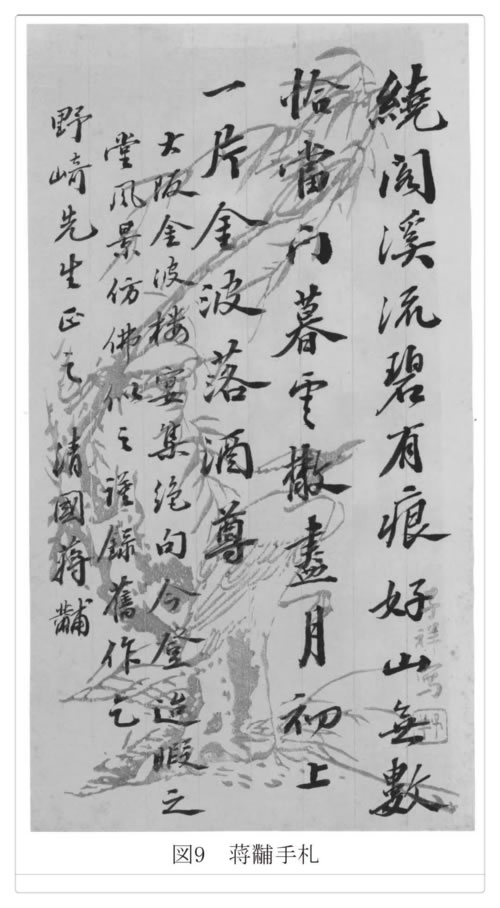 繞閣溪流碧有痕好山無數
恰當門暮雲撤盡月初上
一片金波落酒尊
大阪金波楼宴集絶句今登迨暇之
堂風景仿佛似之謹録舊作乞
野﨑先生正之 清國蔣黼
子祥寫
図9 蒋黼手札